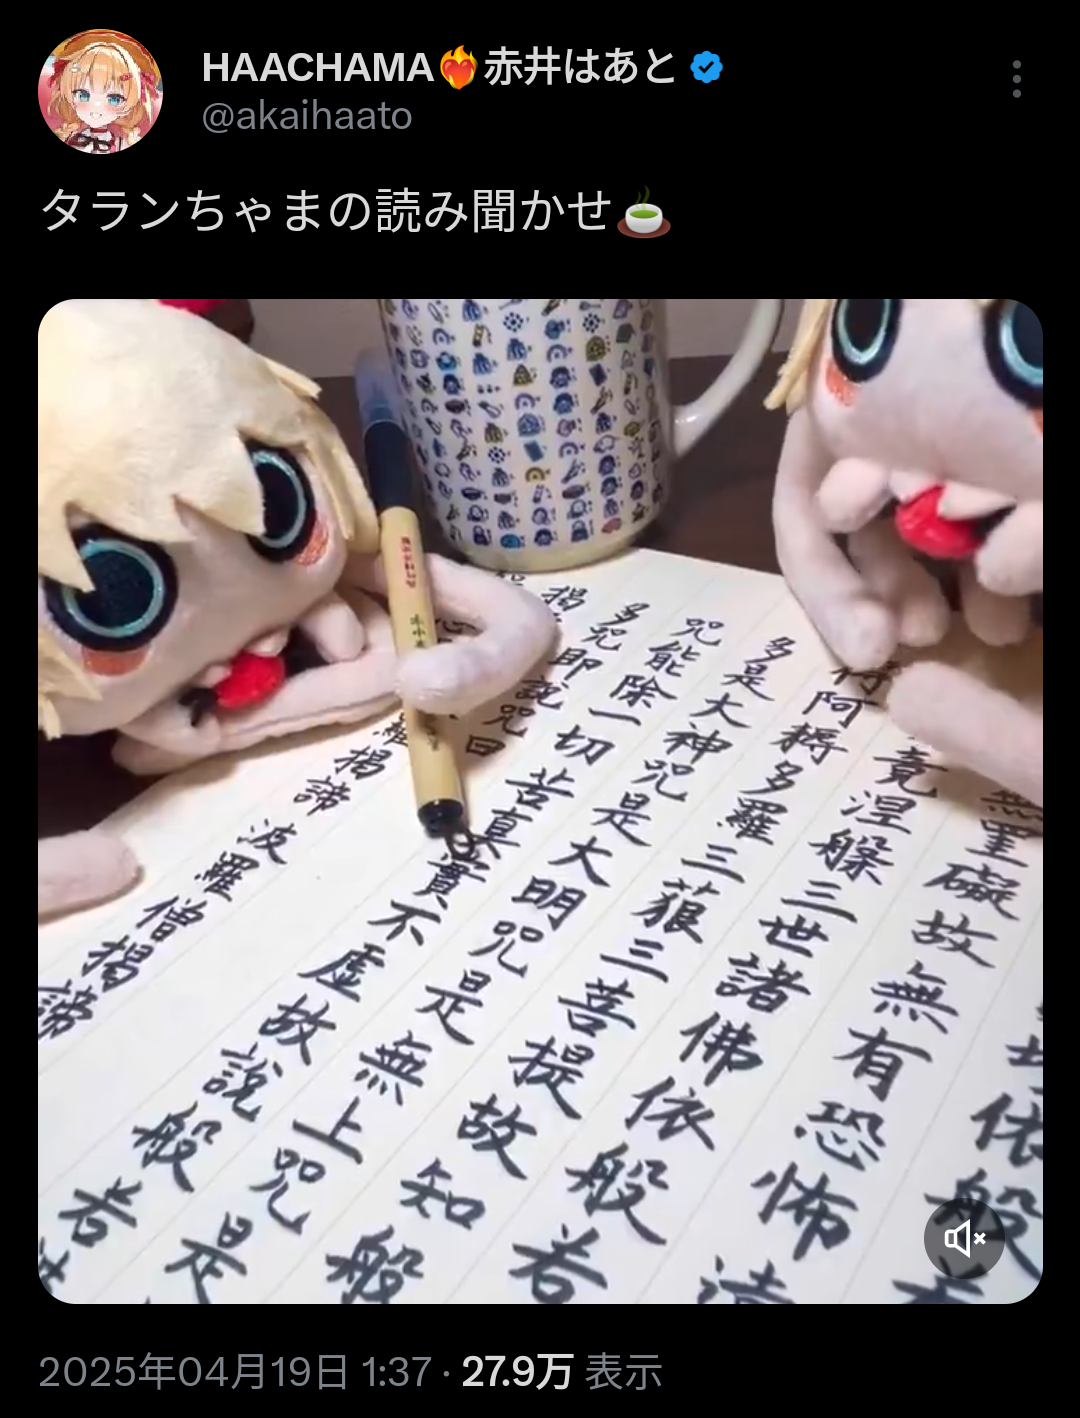 HAACHAMA❤️‍🔥赤井はあと
@akaihaato
タランちゃまの読み聞かせ🍵
依般
無罣礙故無有恐怖遠
竟涅槃三世諸佛依般若
得阿耨多羅三藐三菩提故知般
多是大神咒是大明咒是無上咒是
咒能除一切苦真實不虛故說般若
多咒即說咒曰
揭
羅揭諦 波羅僧揭諦
2025年04月19日 1:37 · 27.9万 表示